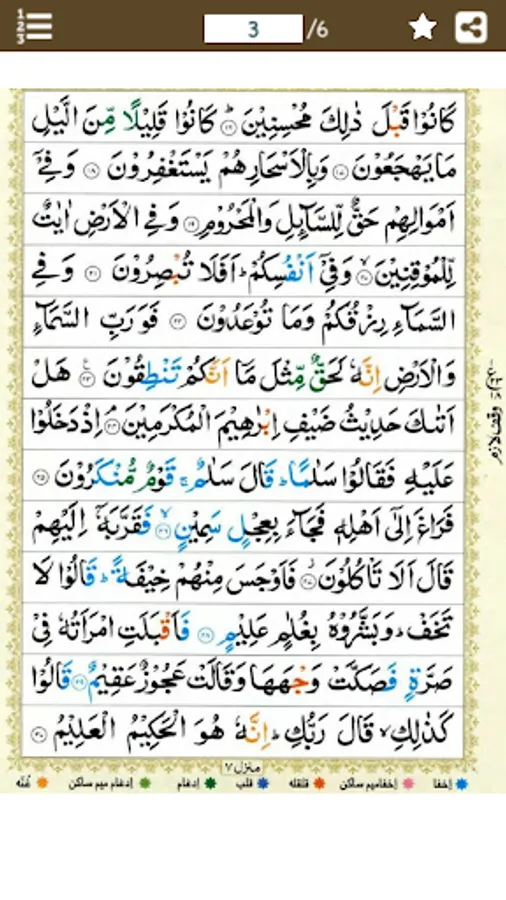 123
3
/6
كَانُوۡا قَبۡلَ ذٰلِكَ مُحۡسِنِيۡنَ ؕ ﴿۱۶﴾ كَانُوۡا قَلِيۡلًا مِّنَ الَّيۡلِ
مَا يَهۡجَعُوۡنَ ﴿۱۷﴾ وَبِالۡاَسۡحَارِهُمۡ يَسۡتَغۡفِرُوۡنَ ﴿۱۸﴾ وَفِىۡۤ
اَمۡوَالِهِمۡ حَقٌّ لِّلسَّآٮِٕلِ وَالۡمَحۡرُوۡمِ ﴿۱۹﴾ وَفِى الۡاَرۡضِ اٰيٰتٌ
لِّلۡمُوۡقِنِيۡنَ ۙ ﴿۲۰﴾ وَفِىۡۤ اَنۡفُسِكُمۡ‌ؕ اَفَلَا تُبۡصِرُوۡنَ ﴿۲۱﴾ وَفِى
السَّمَآءِ رِزۡقُكُمۡ وَمَا تُوۡعَدُوۡنَ ﴿۲۲﴾ فَوَرَبِّ السَّمَآءِ
وَالۡاَرۡضِ اِنَّهٗ لَحَقٌّ مِّثۡلَ مَاۤ اَنَّكُمۡ تَنۡطِقُوۡنَ ﴿۲۳﴾ هَلۡ
اَتٰٮكَ حَدِيۡثُ ضَيۡفِ اِبۡرٰهِيۡمَ الۡمُكۡرَمِيۡنَ‌ۘ ﴿۲۴﴾ اِذۡ دَخَلُوۡا
عَلَيۡهِ فَقَالُوۡا سَلٰمًا‌ؕ قَالَ سَلٰمٌ ۚ قَوۡمٌ مُّنۡكَرُوۡنَ ﴿۲۵﴾
فَرَاغَ اِلٰٓى اَهۡلِهٖ فَجَآءَ بِعِجۡلٍ سَمِيۡنٍۙ ﴿۲۶﴾ فَقَرَّبَهٗۤ اِلَيۡهِمۡ
قَالَ اَلَا تَاۡكُلُوۡنَ ﴿۲۷﴾ فَاَوۡجَسَ مِنۡهُمۡ خِيۡفَةً‌ ؕ قَالُوۡا لَا
تَخَفۡ‌ ؕ وَبَشَّرُوۡهُ بِغُلٰمٍ عَلِيۡمٍ ﴿۲۸﴾ فَاَقۡبَلَتِ امۡرَاَتُهٗ فِىۡ
صَرَّةٍ فَصَكَّتۡ وَجۡهَهَا وَقَالَتۡ عَجُوۡزٌ عَقِيۡمٌ ﴿۲۹﴾ قَالُوۡا
كَذٰلِكِ ۙ قَالَ رَبُّكِ‌ؕ اِنَّهٗ هُوَ الۡحَكِيۡمُ الۡعَلِيۡمُ ﴿۳۰﴾
وقف لازم
منزل ۷
اخفا اخفامیم ساکن قلقله قلب ادغام ادغام میم ساکن غنه